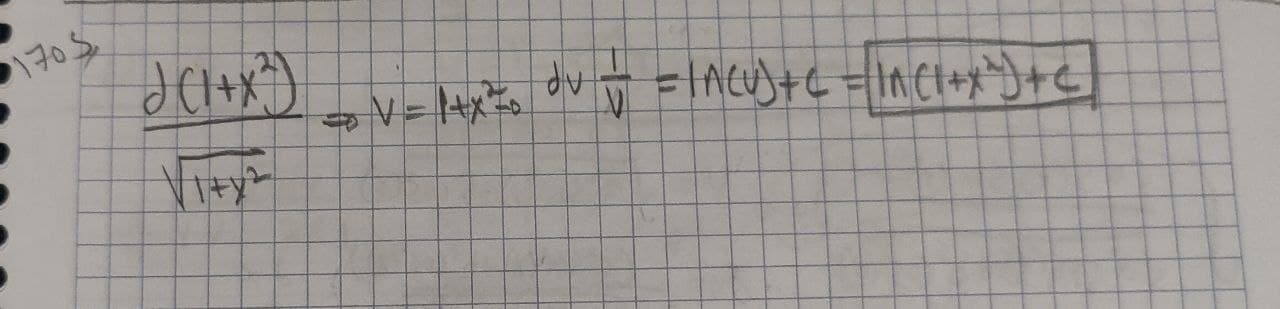 1703) d(1+x²)/√(1+x²) ⇒ v = 1+x² → dv 1/v = ln(v)+c = ln(1+x²)+c